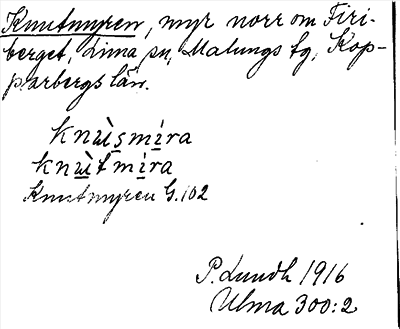 Knutmyren, myr norr om Firi-
berget, Lima sn, Malungs tg, Kop-
parbergs län.
knùismìra
knùtmìra
Knutmyren G. 102
P. Lundh 1916
Ulma 300:2